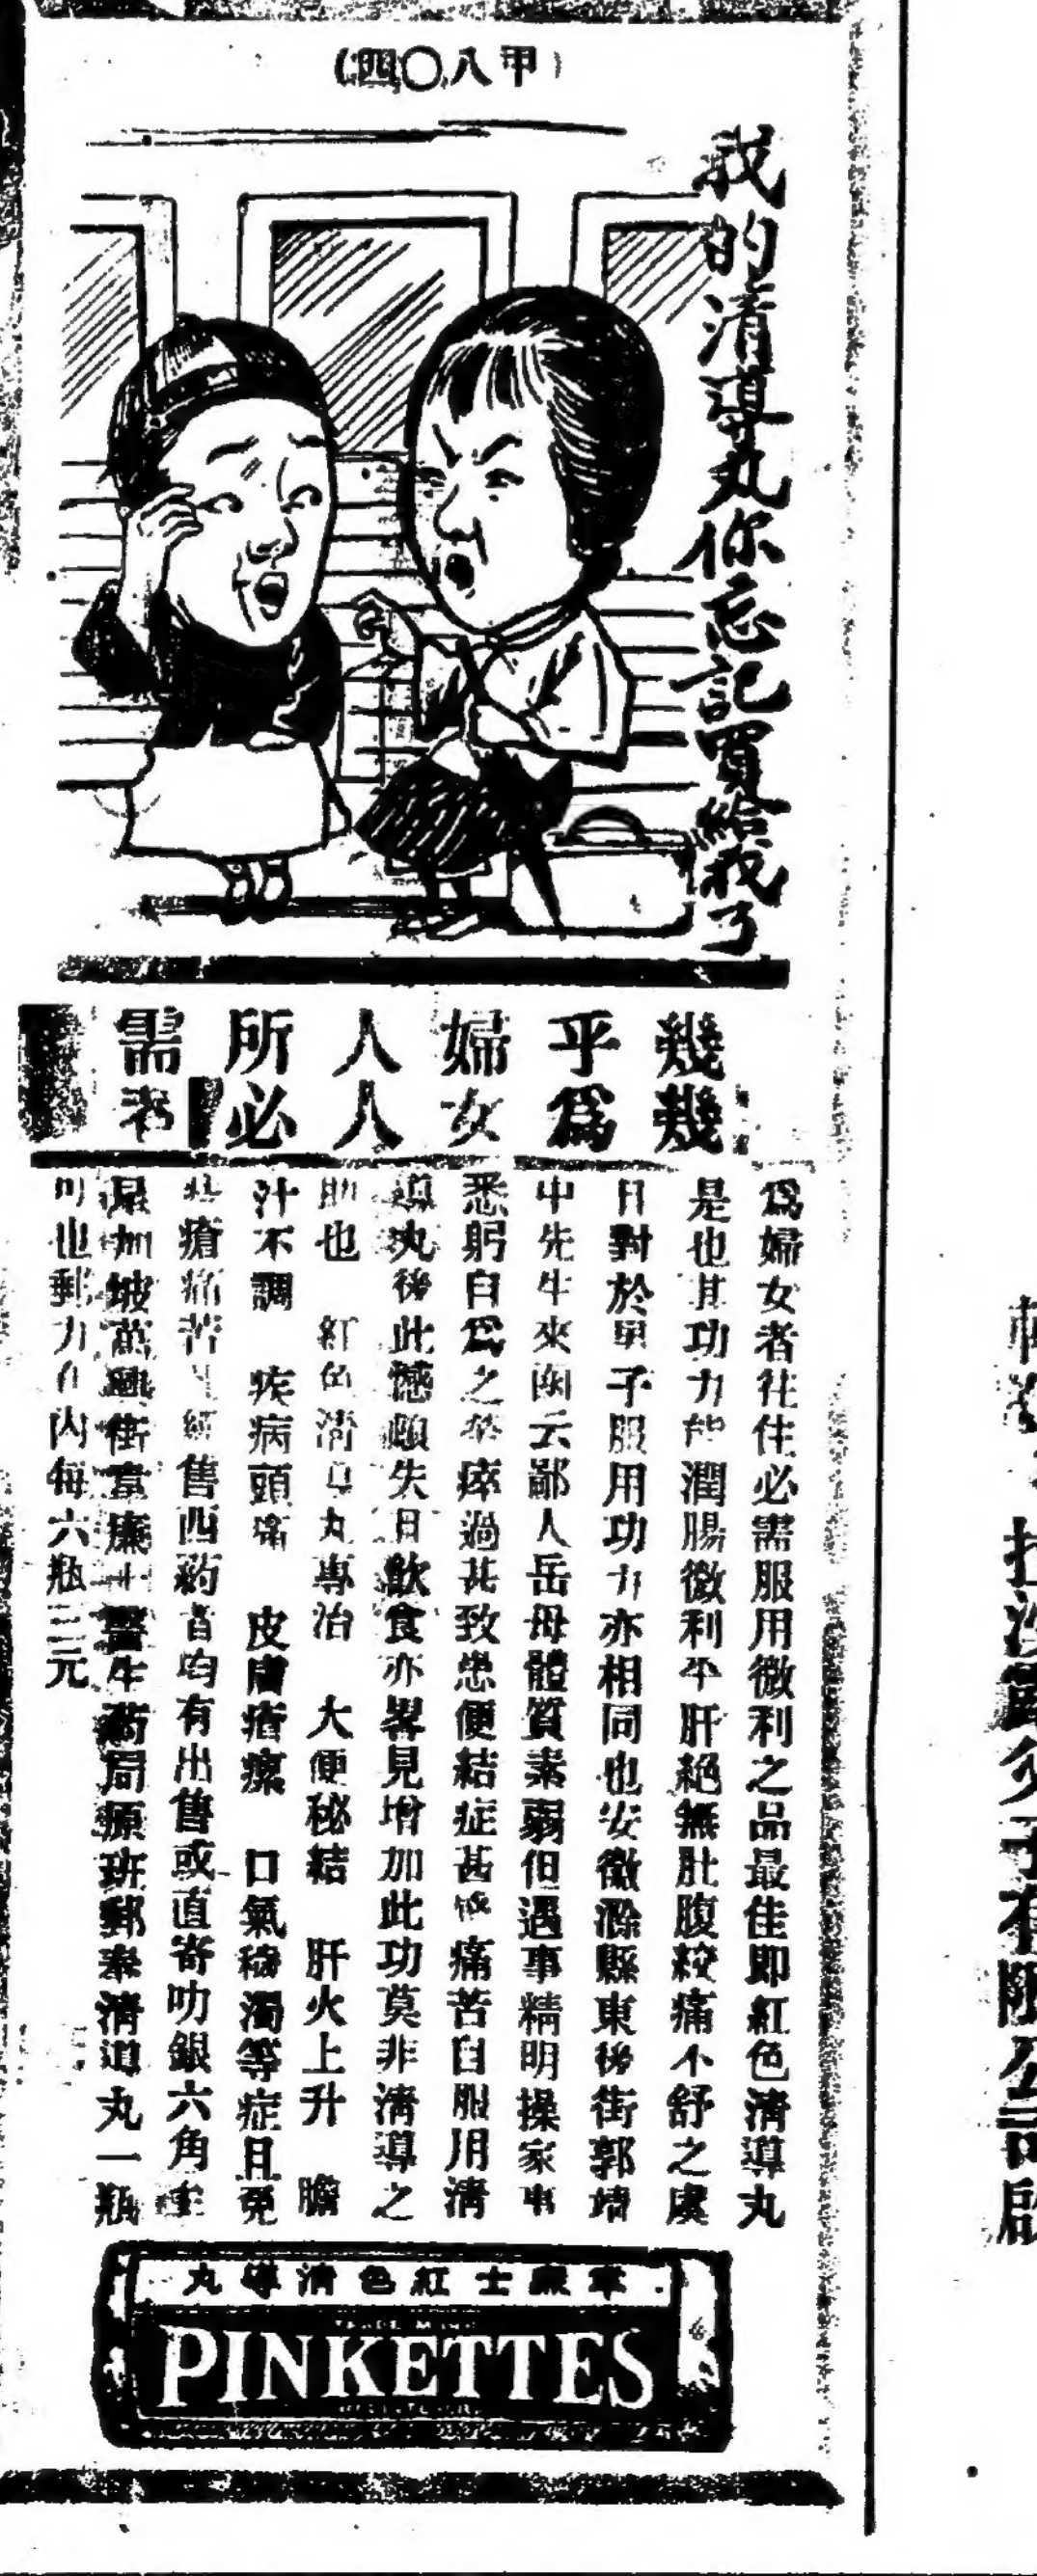 (甲八〇四)
我的清導丸你忘記買給我了
幾乎婦人所需
幾為女人必者
為婦女者往往必需服用微利之品最佳即紅色清導丸
是也其功力能潤腸微利平肝絕無肚腹絞痛不舒之虞
日對於男子服用功力亦相同也安徽滁縣東後街郭靖
中先生來函云鄙人岳母體質素弱但遇事精明操家事
悉躬自為之勞瘁過甚致患便結症甚感痛苦自服用清
導丸後此憾頓失日飲食亦畧見增加此功莫非清導之
助也 紅色清導丸專治 大便秘結 肝火上升 膽
汁不調 疾病頭痛 皮膚瘡瘰 口氣穢濁等症且免
痔瘡痛苦 經售西葯者均有出售或直寄叻銀六角至
星加坡 街韋廉士醫生葯局原班郵奉清導丸一瓶
可也郵力在內每六瓶三元
韋廉士紅色清導丸
TRADE MARK
PINKETTES
拉 有限公司啟